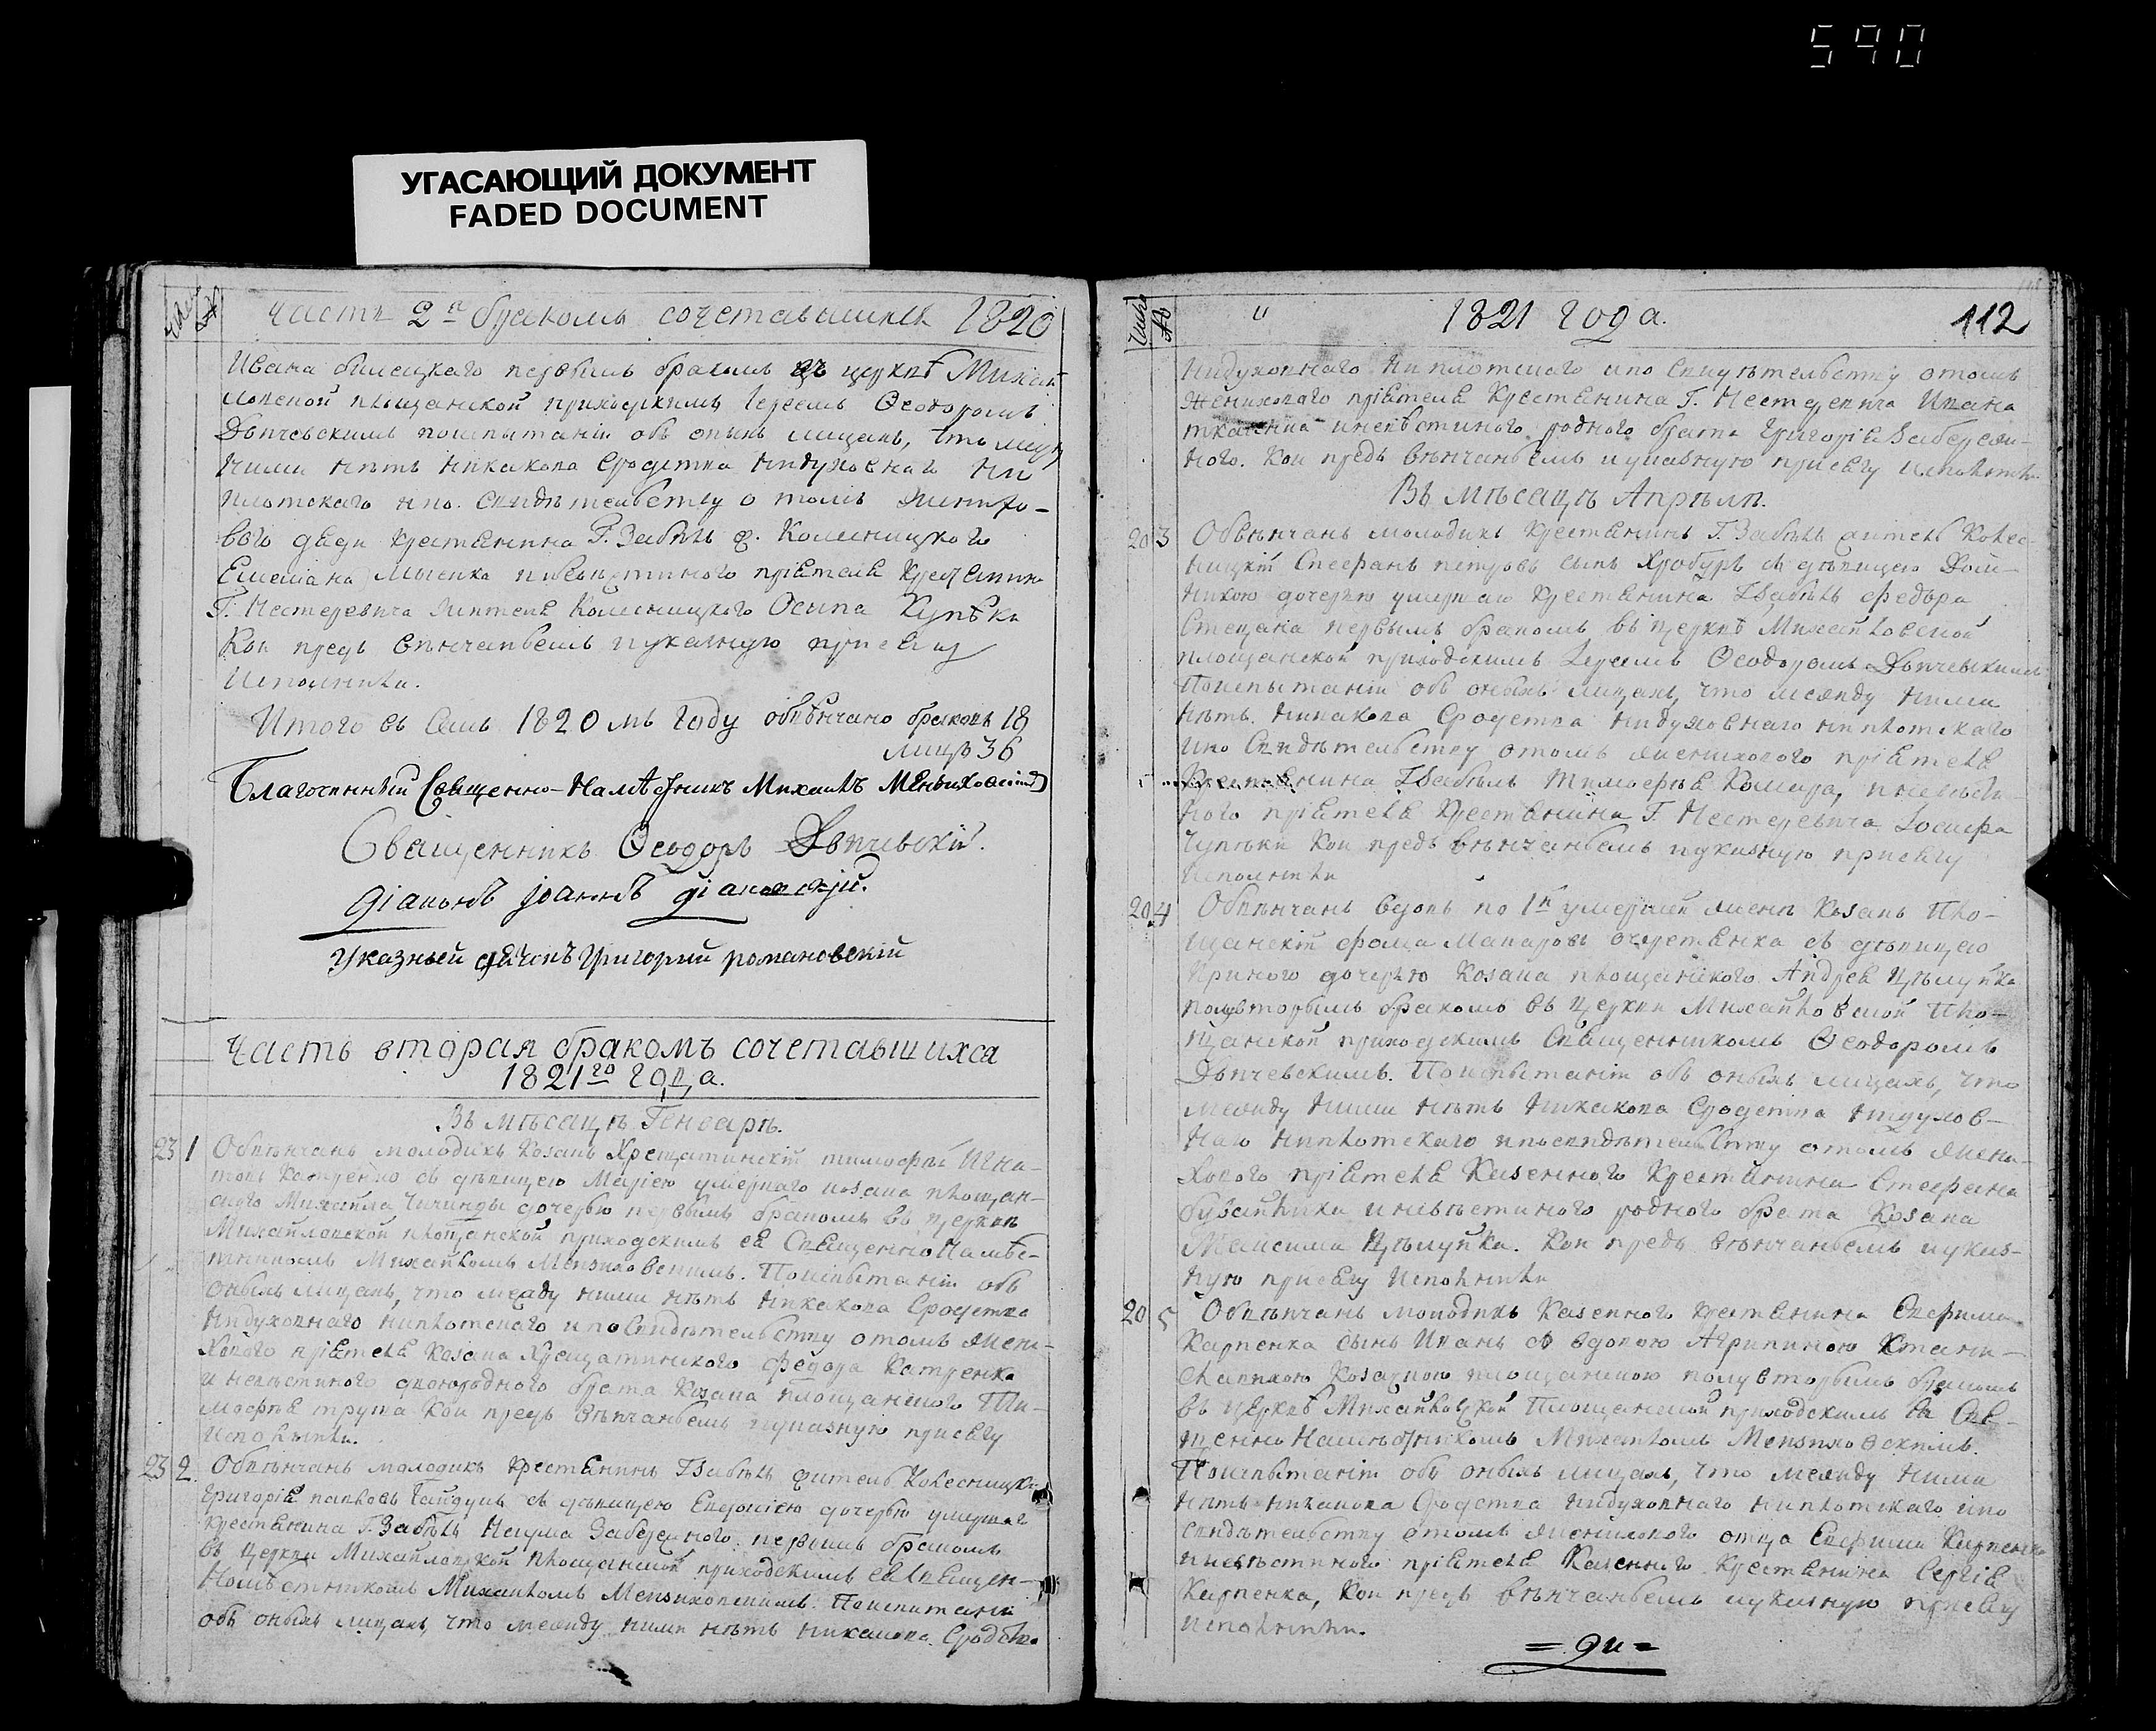 590
УГАСАЮЩИЙ ДОКУМЕНТ
FADED DOCUMENT
Часть 2я бракомъ сочетавшихся 1820
Ивана билецкаго первымъ бракомъ въ церквѣ Михай
ловской площанской приходскимъ Іереемъ Ѳеодоромъ
поиспытаніи объ оныхъ лицахъ, что межу
ними нѣтъ никакова сродства нидуховнаго ни
плотскаго ипо свидѣтельству о томъ жених-
вого дяди крестянина Г. Забѣлъ ж. Колесницкого
Емелiана иневѣстиного пріятеля крестянина
Г. Нестеревича жителя Колесницкого Осипа
Кои предъ вѣнчаньемъ иуказную присягу
исполнили.
Итого въ семъ 1820 мъ году обвѣнчано браковъ 18
лицъ 36
Благочинный Священно-Намѣстникъ Михаилъ
Священникъ Ѳеодоръ
діаконъ Іоаннъ
Указный дячокъ Григорий романовскій
Часть вторая бракомъ сочетавшихся
1821го года.
Въ мѣсацѣ Генварѣ.
23 1 Обвѣнчанъ молодикъ козакъ Хрещатинскій тимофѣй Игна-
товъ съ дѣвицею Маріею умершаго козака площан-
ского Михайла дочерью первымъ бракомъ въ церквѣ
Михайловской площанской приходскимъ ея Священно Намѣс-
тникомъ Михайломъ. Поиспытаніи объ
оныхъ лицахъ, что между ними нѣтъ никакова сродства
нидуховнаго ниплотскаго ипо свидѣтельству отомъ жени-
хового пріятеля козака Хрещатинского федора Катренка
иневѣстиного двоюродного брата козака площанского Ти-
мофѣя кои предъ вѣнчаньемъ иуказную присягу
исполнили.
23 2 Обвѣнчанъ молодикъ крестянинъ Гзабѣлъ житель Колесницкій
Григорій павловъ Гайдукъ съ дѣвицею дочерью умершаго
крестянина Г. Забѣлъ Наума первымъ бракомъ
въ церкви Михайловской площанской приходскимъ ея Священно
Намѣстникомъ Михайломъ. Поиспитаніи
объ оныхъ лицахъ, что межиду ними нѣтъ никакова сродства
1821 года.
112
нидуховнаго ниплотского ипо свидѣтельству отомъ
женихового пріятеля крестянина Г. Нестеревича Ивана
иневѣстиного родного брата Григорія
ного. Кои предъ вѣнчаньемъ иуказную присягу исполнили.
Въ мѣсацѣ Апрѣлѣ.
20 3 Обвѣнчанъ молодикъ крестянинъ Г. Забѣлъ житель Колес-
ницкій Стефанъ петровъ сынъ съ дѣвицею Дом-
никою дочерью умершаго крестянина Гзабѣлъ федора
первымъ бракомъ въ церквѣ Михайловской
площанской приходскимъ Іереемъ Ѳеодоромъ
Поиспытаніи объ оныхъ лицахъ, что межиду ними
нѣтъ никакова сродства нидуховнаго ниплотскаго
ипо свидѣтельству отомъ женихового пріятеля
крестянина Гзабѣлъ Тимофѣя Комара, иневѣсти-
ного пріятеля крестянина Г. Нестеревича Іосифа
кои предъ вѣнчаньемъ иуказную присягу
исполнили
20 4 Обвѣнчанъ вдовъ по 1й умершей женѣ козакъ Пло-
щанскій фома Макаровъ съ дѣвицею
дочерью козака площанского Андрея Цѣлуйка
полувторымъ бракомъ въ церкви Михайловской Пло-
щанской приходскимъ Священникомъ Ѳеодоромъ
Поиспытаніи объ оныхъ лицахъ, что
межиду ними нѣтъ никакова сродства нидухов-
наго ниплотскаго ипосвидѣтельству отомъ жени-
хового пріятеля казенного крестянина Стефана
иневѣстиного родного брата козака
Максима Цѣлуйка. Кои предъ вѣнчаньемъ иуказ-
ную присягу исполнили
20 5 Обвѣнчанъ молодикъ казенного крестянина
Карпенка сынъ Иванъ съ вдовою Агрипиною
козачкою площанскою полувторымъ бракомъ
въ церквѣ Михайловской Площанской приходскимъ ея Свя-
щенно Намѣстникомъ Михайломъ.
Поиспытаніи объ оныхъ лицахъ, что межиду ними
нѣтъ никакова сродства нидуховнаго ниплотскаго ипо
свидѣтельству отомъ женихового отца Карпенка
иневѣстиного пріятеля казенного крестянина Сергія
Карпенка, кои предъ вѣнчаньемъ иуказную присягу
исполнили.